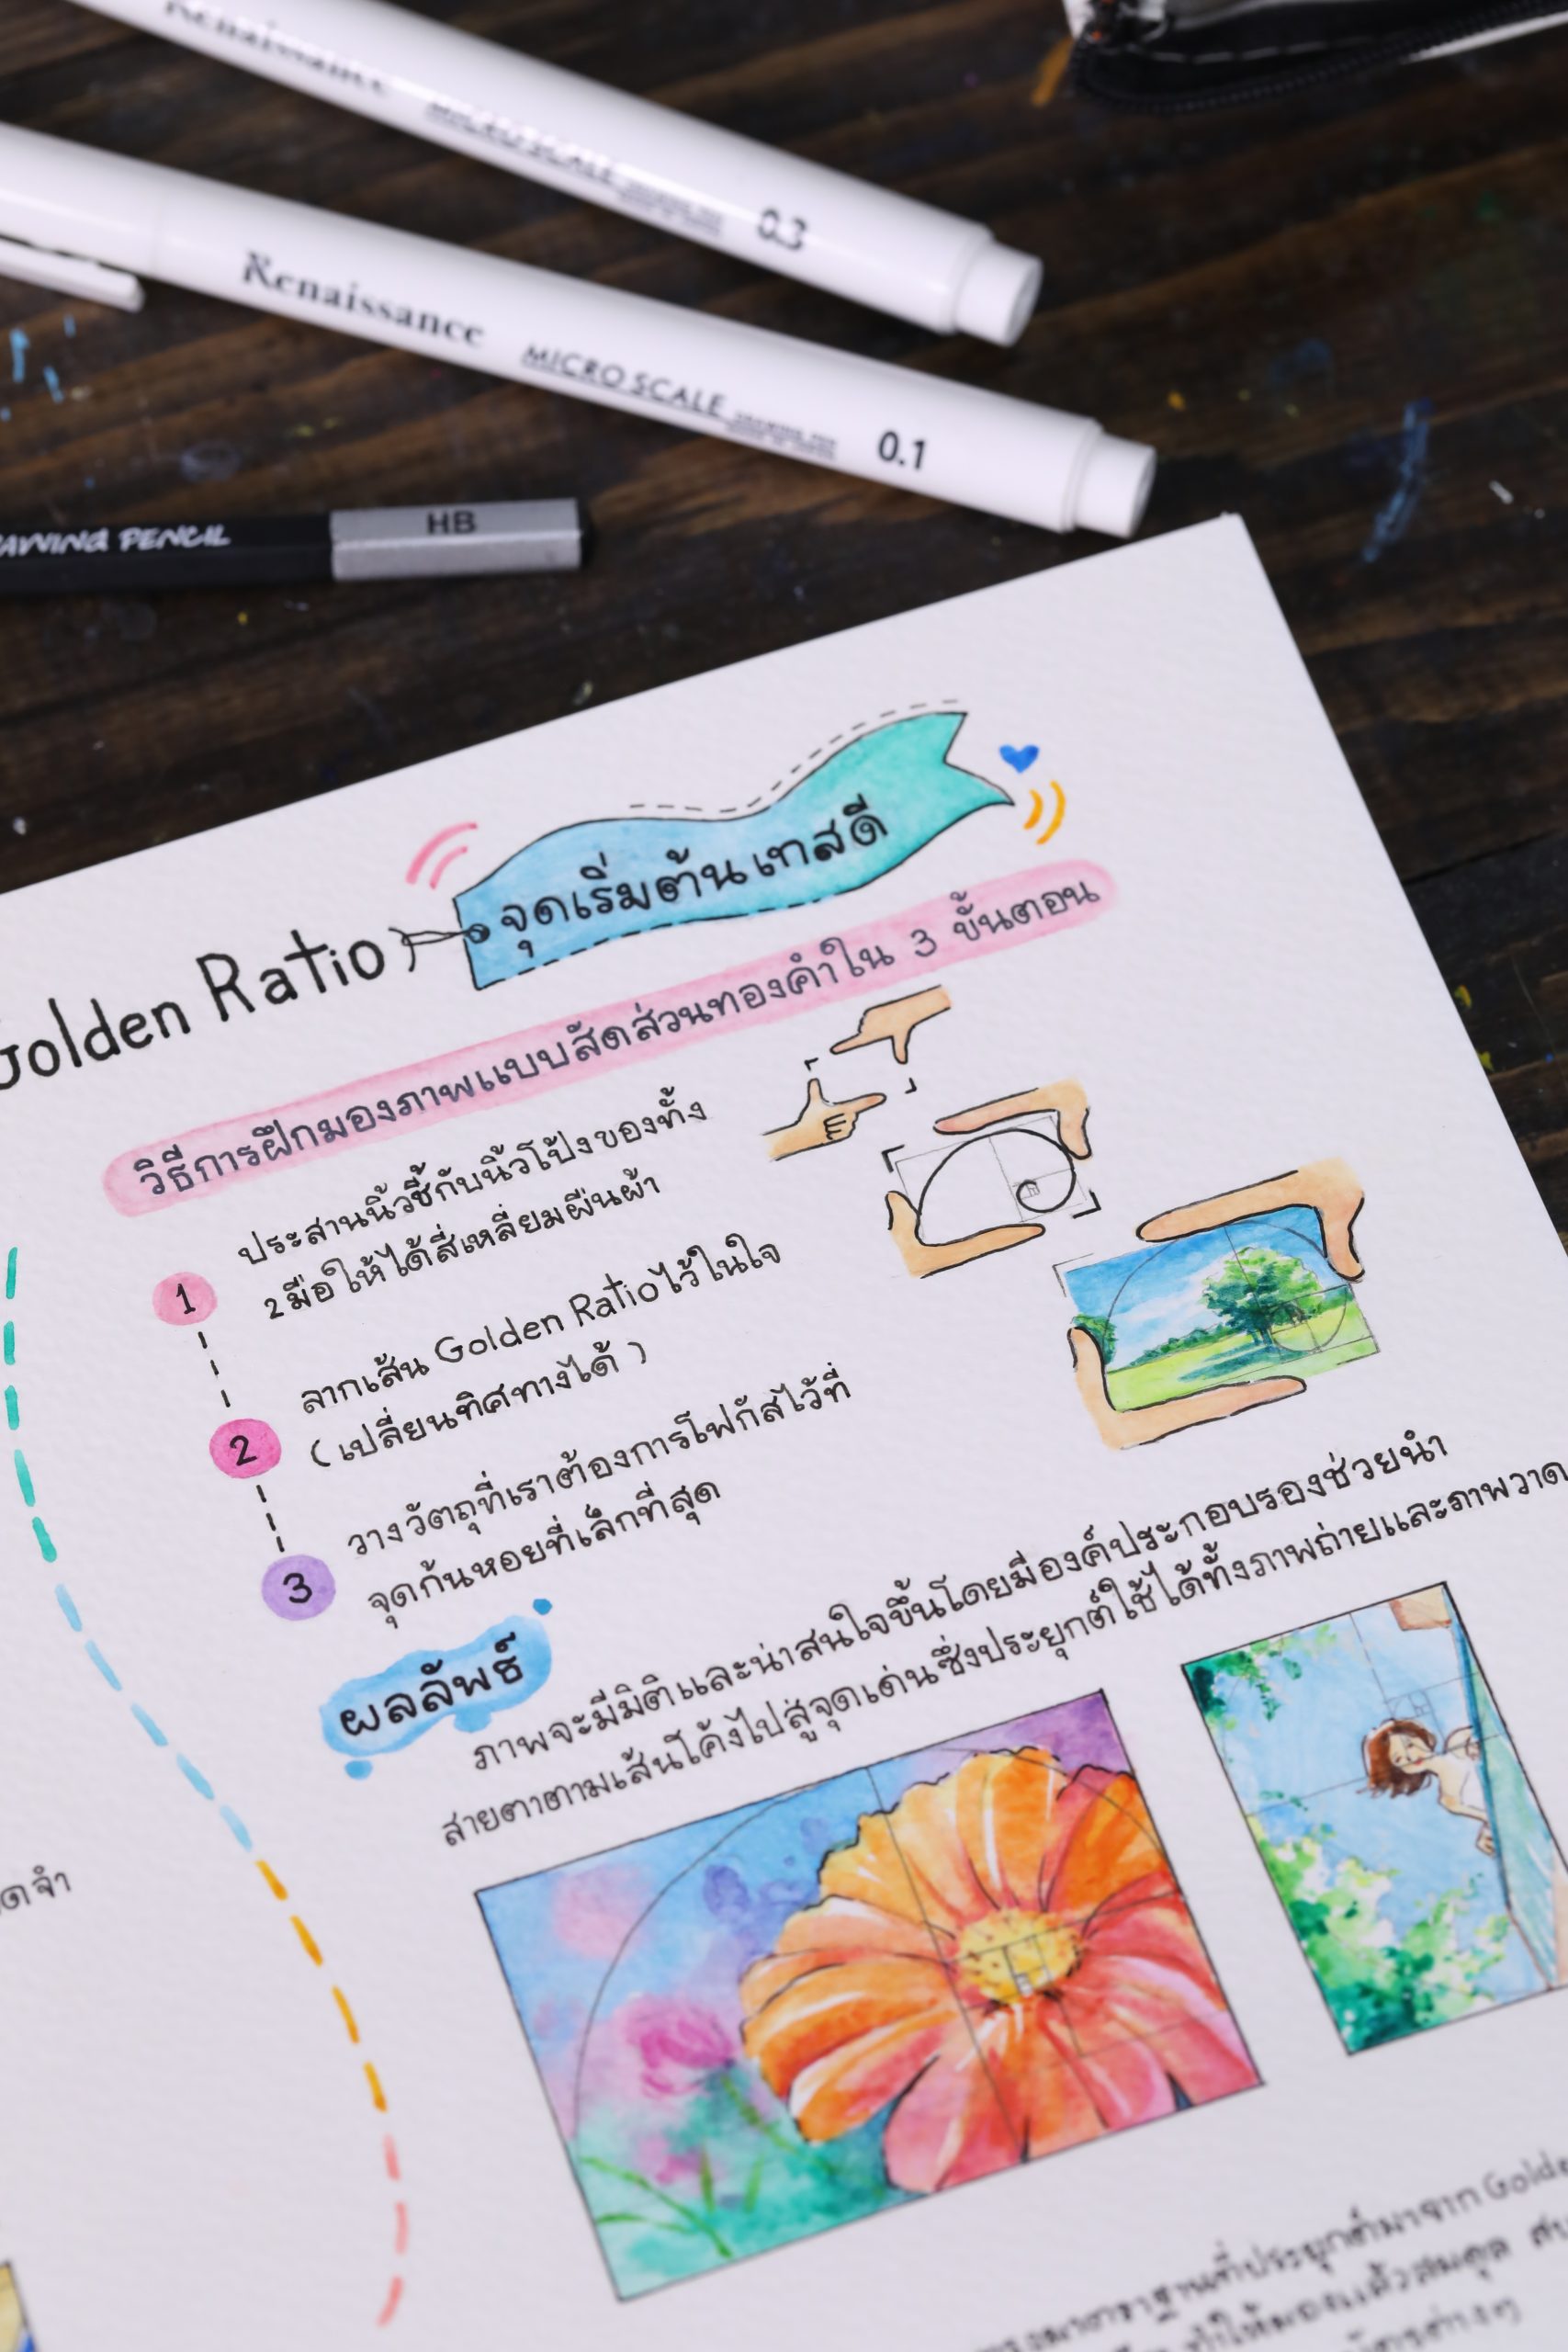 Renaissance
MICRO SCALE
0.3
Renaissance MICRO SCALE
0.1
PENCIL HB
Golden Ratio
จุดเริ่มต้นเทสดี
วิธีการฝึกมองภาพแบบสัดส่วนทองคำใน 3 ขั้นตอน
1
ประสานนิ้วชี้กับนิ้วโป้งของทั้ง
2 มือให้ได้สี่เหลี่ยมผืนผ้า
2
ลากเส้น Golden Ratio ไว้ในใจ
(เปลี่ยนทิศทางได้)
3
วางวัตถุที่เราต้องการโฟกัสไว้ที่
จุดก้นหอยที่เล็กที่สุด
ผลลัพธ์
ภาพจะมีมิติและน่าสนใจขึ้นโดยมีองค์ประกอบรองช่วยนำ
สายตาตามเส้นโค้งไปสู่จุดเด่น ซึ่งประยุกต์ใช้ได้ทั้งภาพถ่ายและภาพวาด
ที่ประยุกต์มาจาก
ทำให้มองแล้วสมดุล